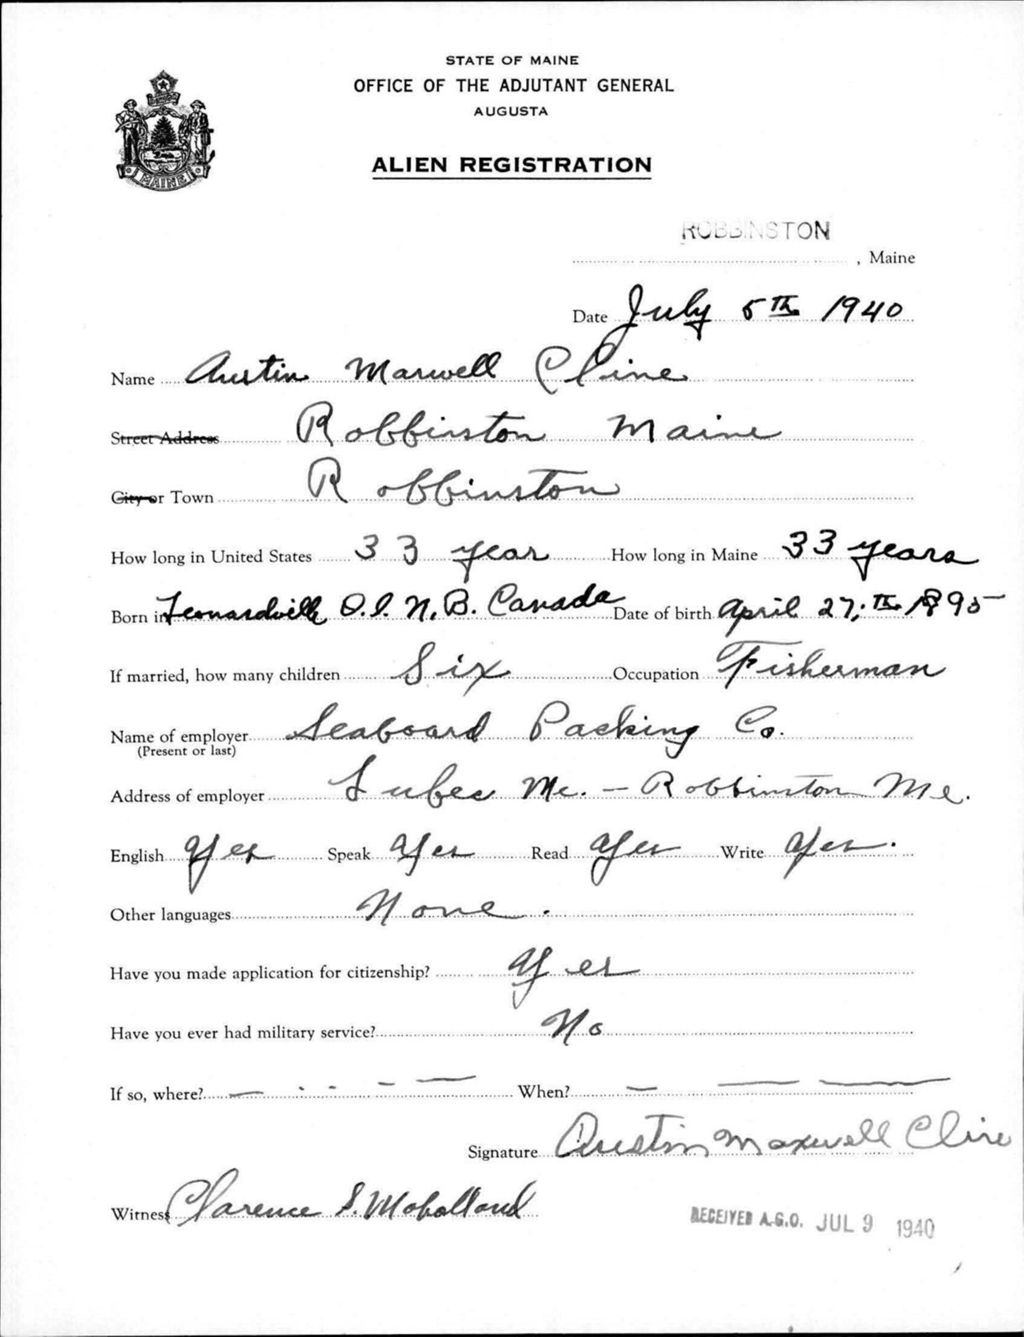 STATE OF MAINE
OFFICE OF THE ADJUTANT GENERAL
AUGUSTA
MAINE
ALIEN REGISTRATION
ROBBINSTON
, Maine
Date July 5th 1940
Name Austin Maxwell Cline
Street Address Robbinston Maine
City or Town Robbinston
How long in United States 33 year How long in Maine 33 years
Born in Leonardville D.I. N.B. Canada Date of birth April 27, th 1895
If married, how many children Six Occupation Fisherman
Name of employer Seaboard Packing Co.
(Present or last)
Address of employer Lubec Me. – Robbinston Me.
English Yes Speak Yes Read Yes Write Yes.
Other languages None.
Have you made application for citizenship? Yes
Have you ever had military service? No
If so, where? — - - - — When? — — —
Signature Austin Maxwell Cline
Witness Clarence S. Moholland
RECEIVED A.G.O. JUL 9 1940